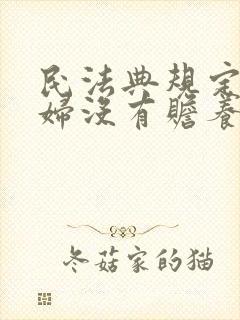 民法典规定
妇没有赡养
冬菇家的猫